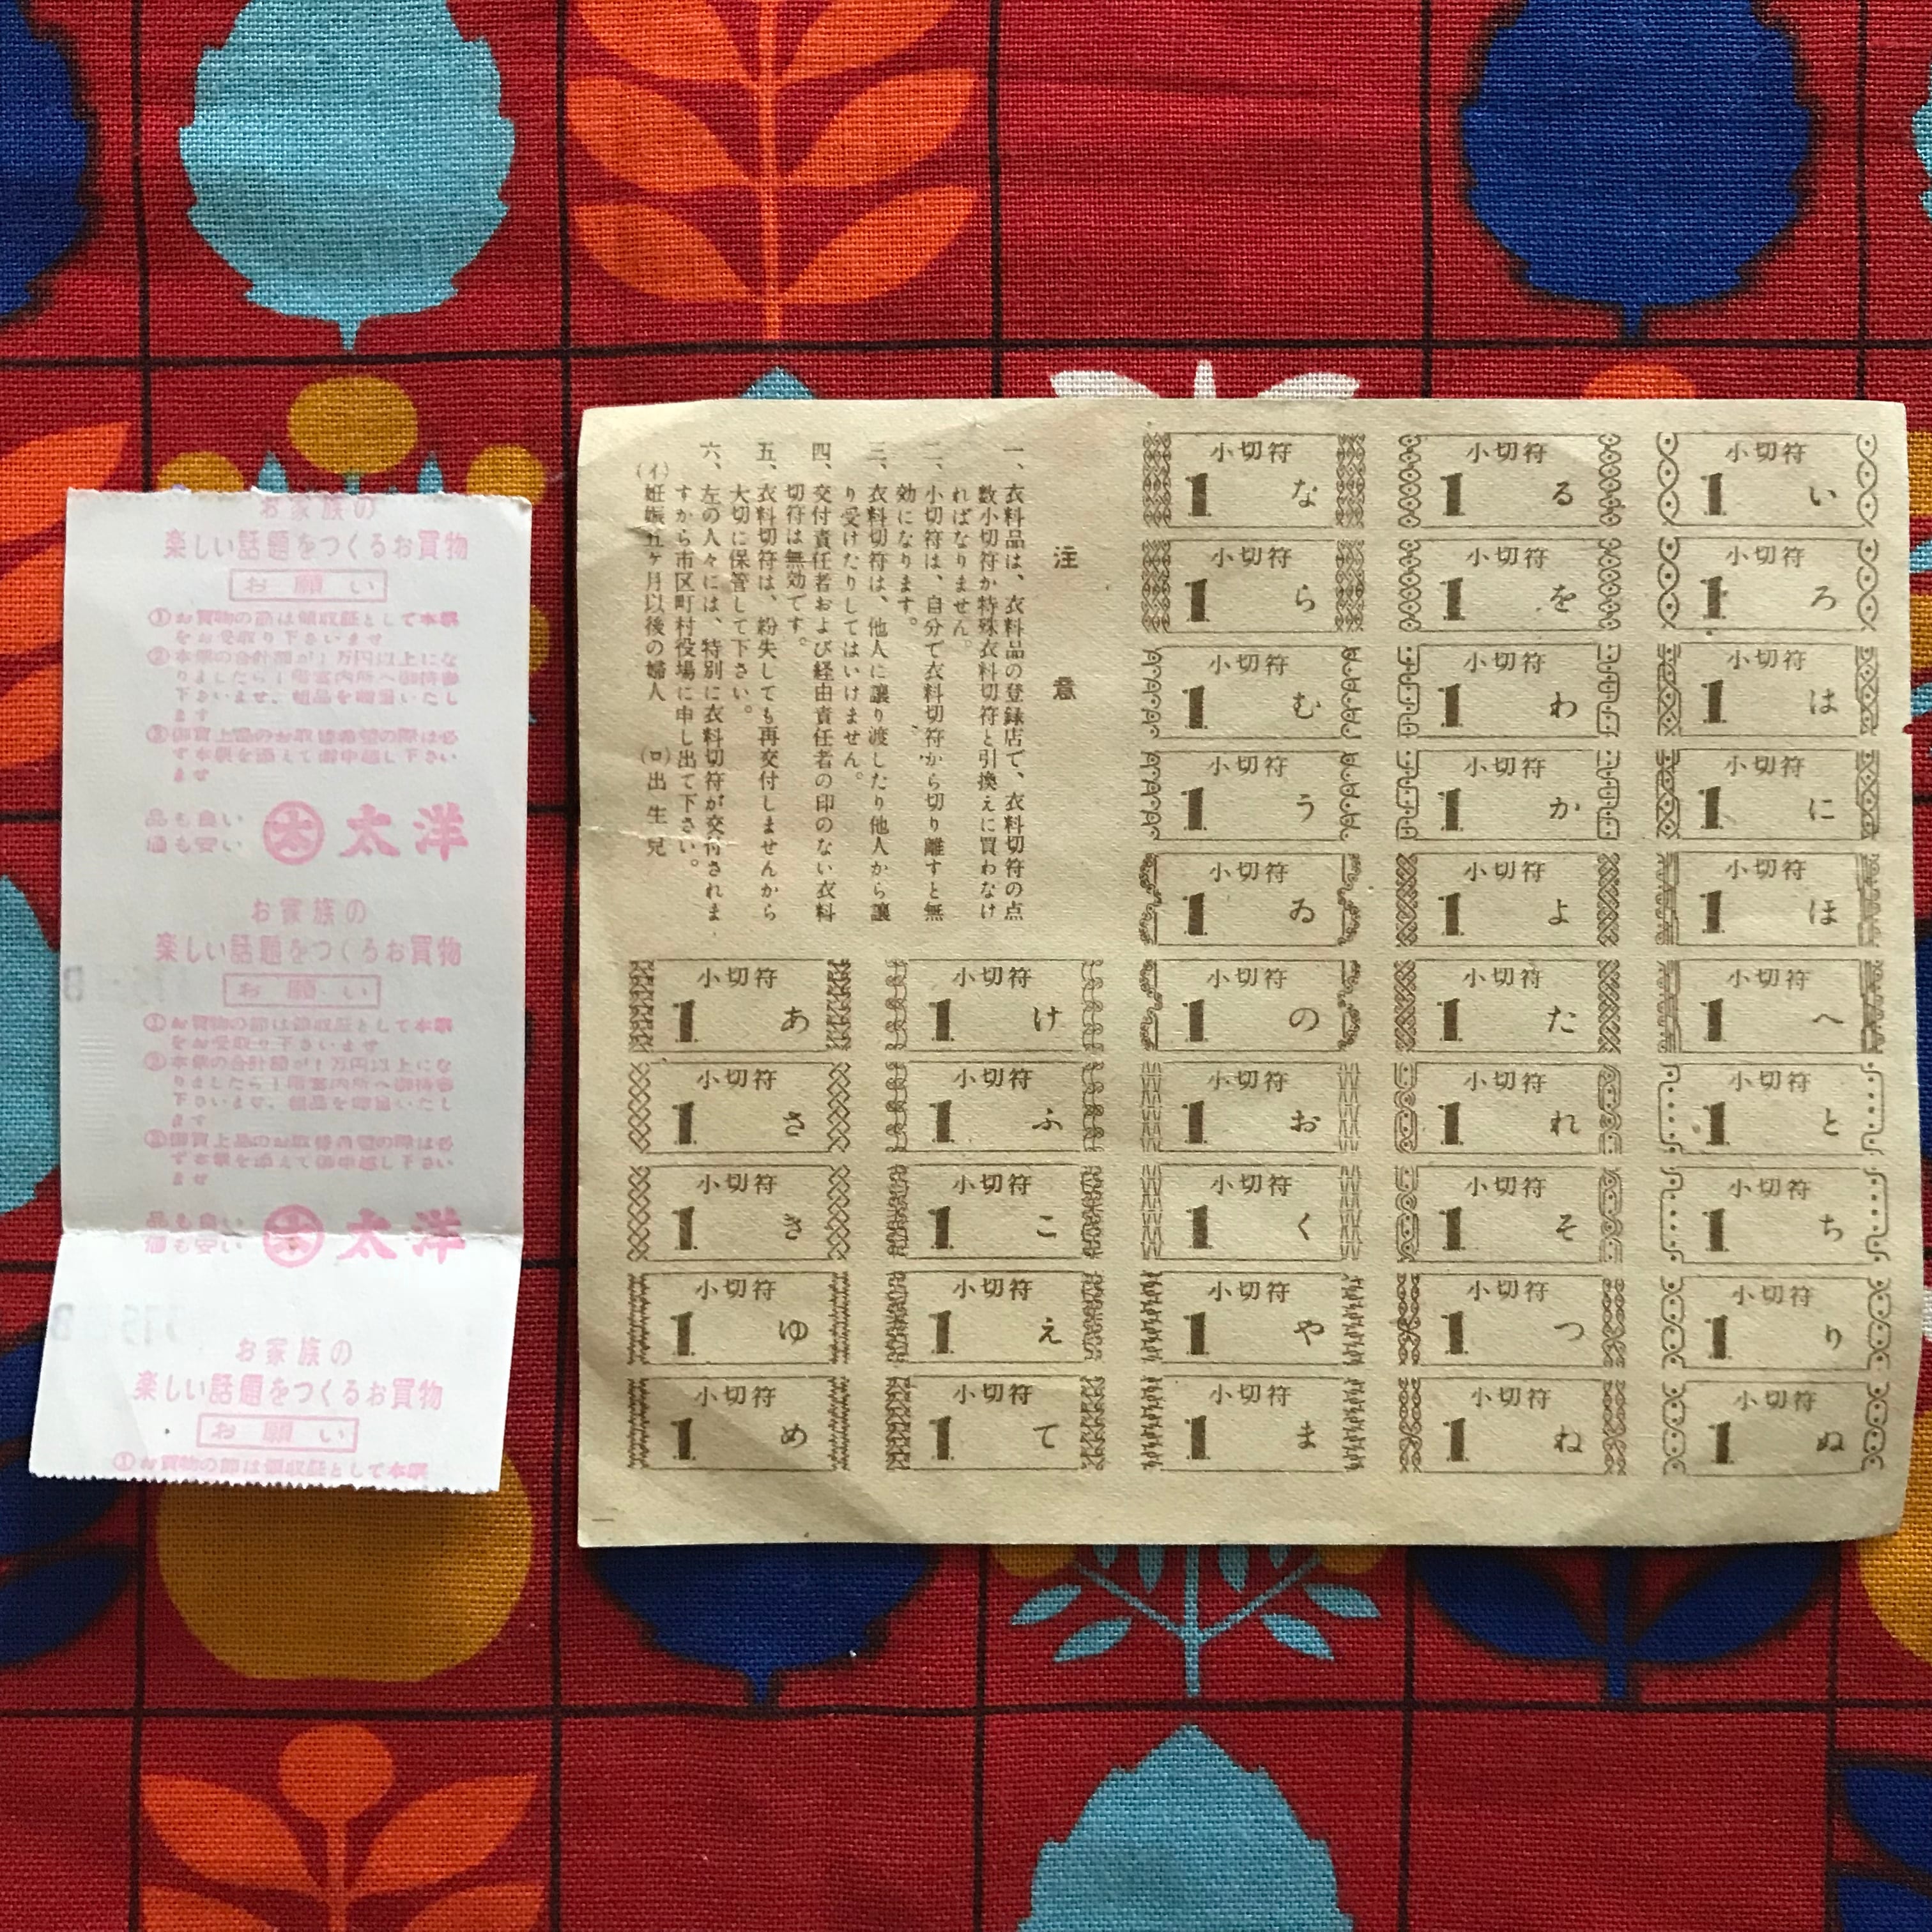 お家族の
楽しい話題をつくるお買物
お願い
①お買物の節は領収証として本票
をお受取り下さいませ
②本票の合計額が1万円以上にな
りましたら1階案内所へ御持参
下さいませ、粗品を贈呈いたし
ます
③御買上品のお取替希望の際は必
ず本票を添えて御申越し下さい
ませ
品も良い
価も安い
太 太洋
お家族の
楽しい話題をつくるお買物
お願い
①お買物の節は領収証として本票
をお受取り下さいませ
②本票の合計額が1万円以上にな
りましたら1階案内所へ御持参
下さいませ、粗品を贈呈いたし
ます
③御買上品のお取替希望の際は必
ず本票を添えて御申越し下さい
ませ
品も良い
価も安い
太 太洋
お家族の
楽しい話題をつくるお買物
お願い
①お買物の節は領収証として本票
小切符
1 い
小切符
1 ろ
小切符
1 は
小切符
1 に
小切符
1 ほ
小切符
1 へ
小切符
1 と
小切符
1 ち
小切符
1 り
小切符
1 ぬ
小切符
1 る
小切符
1 を
小切符
1 わ
小切符
1 か
小切符
1 よ
小切符
1 た
小切符
1 れ
小切符
1 そ
小切符
1 つ
小切符
1 ね
小切符
1 な
小切符
1 ら
小切符
1 む
小切符
1 う
小切符
1 ゐ
小切符
1 の
小切符
1 お
小切符
1 く
小切符
1 や
小切符
1 ま
注意
一、衣料品は、衣料品の登録店で、衣料切符の点
数小切符か特殊衣料切符と引換えに買わなけ
ればなりません。
二、小切符は、自分で衣料切符から切り離すと無
効になります。
三、衣料切符は、他人に譲り渡したり他人から譲
り受けたりしてはいけません。
四、交付責任者および経由責任者の印のない衣料
切符は無効です。
五、衣料切符は、紛失しても再交付しませんから
大切に保管して下さい。
六、左の人々には、特別に衣料切符が交付されま
すから市区町村役場に申し出て下さい。
(イ)妊娠五ヶ月以後の婦人 (ロ)出生児
小切符
1 け
小切符
1 ふ
小切符
1 こ
小切符
1 え
小切符
1 て
小切符
1 あ
小切符
1 さ
小切符
1 き
小切符
1 ゆ
小切符
1 め